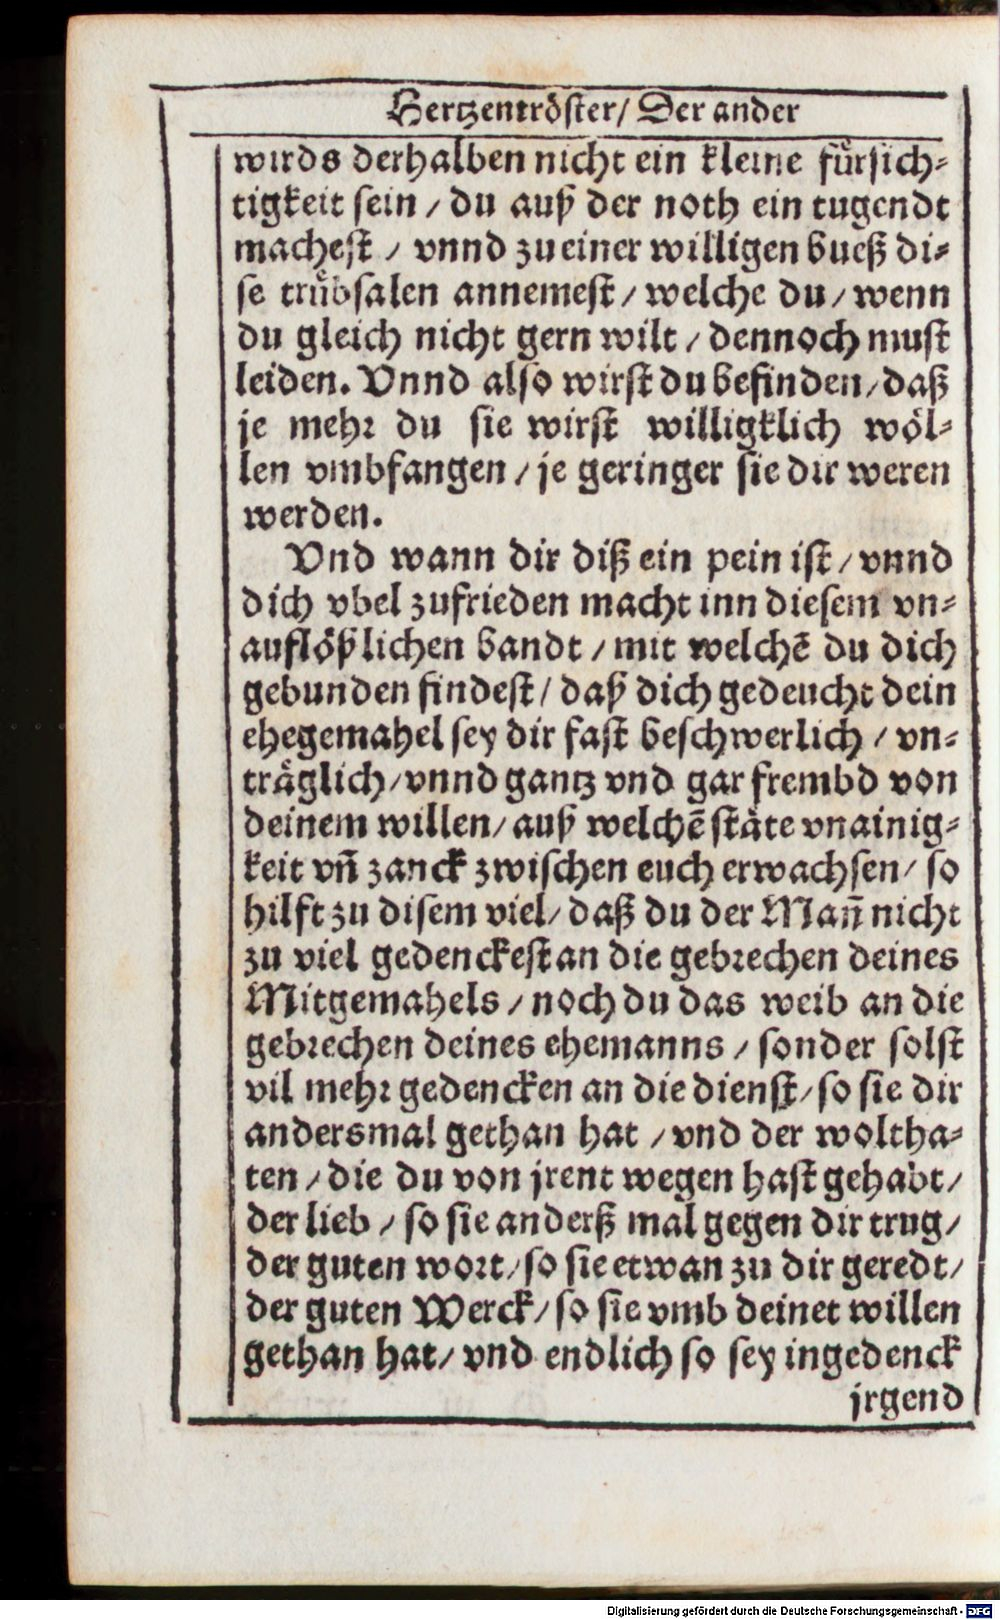 Hertzentröster/ Der ander
wirds derhalben nicht ein kleine fürsich⸗
tigkeit sein / du auß der noth ein tugendt
machest / vnnd zu einer willigen bueß di⸗
se trübsalen annemest / welche du / wenn
du gleich nicht gern wilt / dennoch must
leiden. Vnnd also wirst du befinden / daß
je mehr du sie wirst willigklich wöl⸗
len vmbfangen / je geringer sie dir weren
werden.
Vnd wann dir diß ein pein ist / vnnd
dich vbel zufrieden macht inn diesem vn⸗
auflößlichen bandt / mit welchē du dich
gebunden findest / daß dich gedeucht dein
ehegemahel sey dir fast beschwerlich / vn⸗
träglich / vnnd gantz vnd gar frembd von
deinem willen / auß welchē stäte vnainig⸗
keit vñ zanck zwischen euch erwachsen / so
hilft zu disem viel / daß du der Mañ nicht
zu viel gedenckest an die gebrechen deines
Mitgemahels / noch du das weib an die
gebrechen deines ehemanns / sonder solst
vil mehr gedencken an die dienst / so sie dir
andersmal gethan hat / vnd der woltha⸗
ten / die du von jrent wegen hast gehabt /
der lieb / so sie anderß mal gegen dir trug /
der guten wort / so sie etwan zu dir geredt /
der guten Werck / so sie vmb deinet willen
gethan hat / vnd endlich so sey ingedenck
jrgend
Digitalisierung gefördert durch die Deutsche Forschungsgemeinschaft - DFG